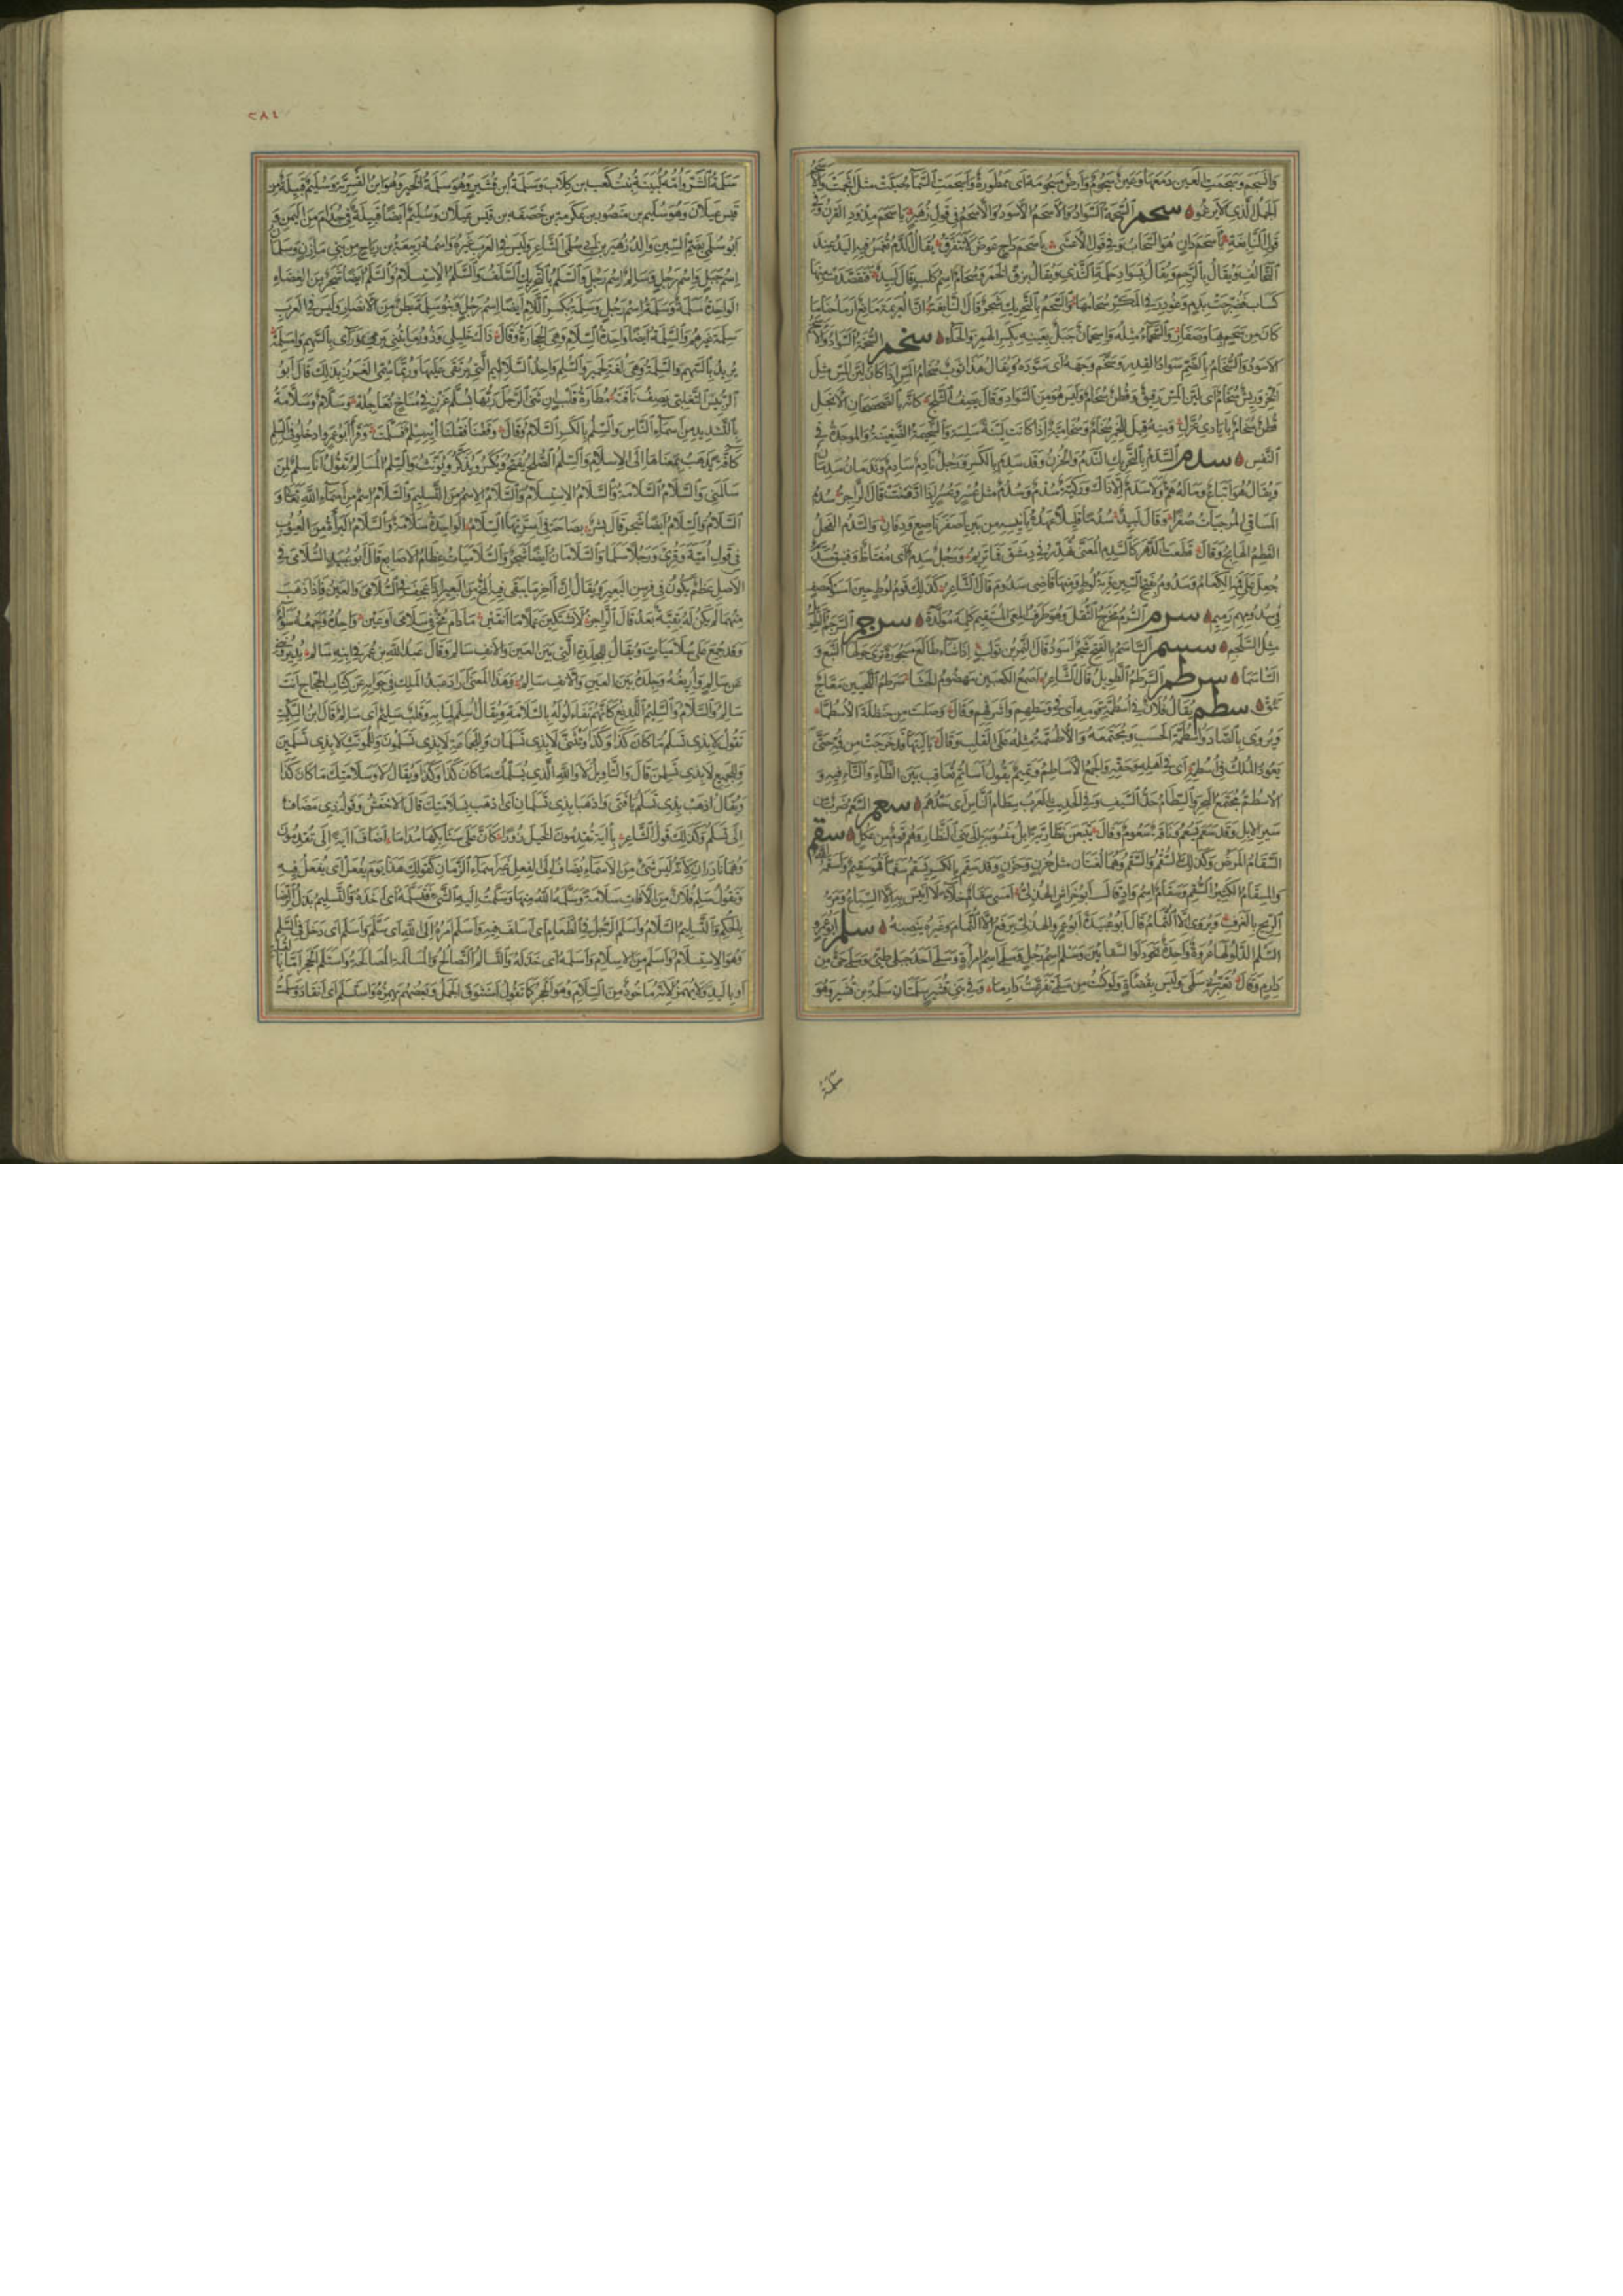 وانسجم وسجمت العين دمعها وعين سجوم وارض مسجومة اى ممطورة واسجمت السماء صبت مثل اثجمت والاسجم
الجمل الذى لا يرغو سحم السحمة السواد والاسحم الاسود والاسحم فى قول زهير باسحم مذود القرن وفى
قول النابغة باسحم دان هو السحاب وفى قول الاعشى باسحم داج عوض لا نتفرق يقال الدم تغمس فيه اليد عند
التحالف ويقال بالرحم ويقال بسواد حلمة الثدى ويقال بزق الخمر وسحام اسم كلب قال لبيد فتقصدت منها
كساب فضرجت بدم وغودر فى المكر سحامها والسحم بالتحريك شجر قال النابغة ان العريمة مانع ارماحنا ما
كان من سحم بها وصفار والسحماء مثله واسحمان جبل بعينه بكسر الهمز والحاء سخم السخمة السواد والاسخم
الاسود والسخام بالضم سواد القدر وسخم وجهه اى سوده ويقال هذا ثوب سخام المس اذا كان لين المس مثل
الخز وريش سخام اى لين المس رقيق وقطن سخام وليس هو من السواد وقال يصف الثلج كانه بالصحصحان الانجل
قطن سخام بايادى غزل ومنه قيل للخمر سخام وسخامية اذا كانت لينة سلسة والسخيمة الضغينة والموجدة فى
النفس سدم السدم بالتحريك الندم والحزن وقد سدم بالكسر ورجل نادم سادم وندمان سدمان
ويقال هو اتباع وماله هم ولا سدم الا ذاك وركية سدم وسدم مثل عسر وعسر اذا ادفنت قال الراجز سدم
المساقى المرخيات صفرا وقال لبيد سدما قليلا عهده بانيسه من بين اصفر ناصع ودفان والسدم الفحل
القطم الهائج وقال قطعت الدهر كالسدم المعنى تهدر فى دمشق فما تريم ورجل سدم اى مغتاظ وفنيق مسدم
جعل على فمه الكعام وسدوم بفتح السين قرية لوط ومنها قاضى سدوم قال الشاعر كذلك قوم لوط حين امسوا كعصف
فى سدومهم رميم سرم السرم مخرج الثفل وهو طرف المعى المستقيم كلمة مولدة سرجم السرجم الطويل
مثل السلجم سسم الساسم بالفتح شجر اسود قال النمر بن تولب اذا شاء طالع مسجورة ترى حولها النبع و
الساسما سرطم السرطم الطويل قال الشاعر اصمع الكعبين مهضوم الحشا سرطم اللحيين معاج
تئق سطم يقال فلان فى اسطمة قومه اى فى وسطهم واشرافهم وقال وصلت من حنظلة الاسطما
ويروى بالصاد واسطمة الحسب وسطه ومجتمعه والاطسمة مثله على القلب وقال يا ليتها قد خرجت من فمه حتى
يعود الملك فى اسطمه اى فى اهله وحقه والجمع الاساطم وتميم يقول اساتم تعاقب بين الطاء والتاء فيه و
الاسطم مجتمع البحر والسطام حد السيف وفى الحديث العرب سطام الناس اى حدهم سعم السعم ضرب من
سير الابل وقد سعم يسعم وناقة سعوم وقال يتبعن نظارية سقم
السقام المرض وكذلك السقم والسقم وهما لغتان مثل حزن وحزن وقد سقم بالكسر يسقم سقما فهو سقيم واسقمه الله
والمسقام الكثير السقم وسقام اسم واد قال ابو خراش الهذلى امسى سقام خلاء لا انيس به الا السباع ومر
الريح بالغرف ويروى الا الثمام قال ابو عبيدة ابو عمرو الهذلى يرفع الا الثمام وغيره ينصبه سلم ابو عمرو
السلم الدلو لها عروة واحدة نحو دلو السقائين وسلم اسم رجل وسلمى اسم امراة وسلمى احد جبلى طيئ وسلمى حى من
دارم وقال تعيرنى سلمى وليس بقضاة ولو كنت من سلمى تفرعت دارما وفى بنى قشير سلمتان سلمة بن قشير وهو
سلمة
٢٨٤
سلمة الشر وامه لبينة بنت كعب بن كلاب وسلمة ابن قشير وهو سلمة الخير وهو ابن القسرية وسليم قبيلة من
قيس عيلان وهو سليم بن منصور بن عكرمة بن خصفة بن قيس عيلان وسليم ايضا قبيلة فى جذام من اليمن و
ابو سلمى بضم السين والد زهير بن ابى سلمى الشاعر وليس فى العرب غيره واسمه ربيعة بن رياح من بنى مازن وسلمان
اسم جبل واسم رجل وسالم اسم رجل والسلم بالتحريك السلف والسلم الاستسلام والسلم ايضا شجر من العضاه
الواحدة سلمة وسلمة اسم رجل وسلمة بكسر اللام ايضا اسم رجل وبنو سلمة بطن من الانصار وليس فى العرب
سلمة غيرهم والسلمة ايضا واحدة السلام وهى الحجارة وقال ذاك خليلى وذو يعاتبنى يرمى ورائى بالسهم واسلمة
يريد بالسهم والسلمة وهى لغة لحمير والسلم واحد السلاليم التى يرتقى عليها وربما سمى الغرز بذلك قال ابو
الربيس التغلبى يصف ناقته مطارة قلب ان ثنى الرجل ربها بسلم غرز فى مناخ تعاجله وسلام وسلامة
بالتشديد من اسماء الناس والسلم بالكسر السلام وقال وقفنا فقلنا ايه سلم فسلمت وقرا ابو عمرو ادخلوا فى السلم
كافة يذهب بمعناها الى الاسلام والسلم الصلح يفتح ويكسر ويذكر ويؤنث والسلم المسالم تقول انا سلم لمن
سالمنى والسلام السلامة والسلام الاستسلام والسلام الاسم من التسليم والسلام اسم من اسماء الله تعالى و
السلام والسلام ايضا شجر قال بشر بصاحة فى اسرتها السلام الواحدة سلامة والسلام البراءة من العيوب
فى قول امية وقرئ ورجلا سلما والسلامان ايضا شجر والسلاميات عظام الاصابع قال ابو عبيد السلامى فى
الاصل عظم يكون فى فرسن البعير ويقال ان اخر ما يبقى فيه المخ من البعير اذا عجف فى السلامى والعين فاذا ذهب
منهما لم يكن له بقية بعد قال الراجز لا يشتكين عملا ما انقين ما دام مخ فى سلامى او عين واحده وجمعه سواء
وقد جمع على سلاميات ويقال للجلدة التى بين العين والانف سالم وقال عبد الله بن عمر فى ابنه سالم يديروننى
عن سالم واريغه وجلدة بين العين والانف سالم وهذا المعنى اراد عبد الملك فى جوابه عن كتاب الحجاج انت
سالم والسلام والسليم اللديغ كانهم تفاءلوا له بالسلامة ويقال اسلم لما به وقلب سليم اى سالم قال ابن السكيت
تقول لا بذى تسلم ما كان كذا وكذا وتثنى لا بذى تسلمان وللجماعة لا بذى تسلمون وللمؤنث لا بذى تسلمين
وللجميع لا بذى تسلمن قال والتاويل لا والله الذى يسلمك ما كان كذا وكذا ويقال لا وسلامتك ما كان كذا
ويقال اذهب بذى تسلم يا فتى واذهبا بذى تسلمان اى اذهب بسلامتك قال الاخفش وقوله ذى مضاف
الى تسلم وكذلك قول الشاعر باية تقدمون الخيل زورا كان على سنابكها مداما اضاف اية الى تقدمون
وهما نادران لانه ليس شئ من الاسماء يضاف الى الفعل غير اسماء الزمان كقولك هذا يوم يفعل اى يفعل فيه
وتقول سلم فلان من الافات سلامة وسلمه الله منها وسلمت اليه الشئ فتسلمه اى اخذه والتسليم بذل الرضا
بالحكم والتسليم السلام واسلم الرجل فى الطعام اى اسلف فيه واسلم امره الى الله اى سلم واسلم اى دخل فى السلم
وهو الاستسلام واسلم من الاسلام واسلمه اى خذله والتسالم التصالح والمسالمة المصالحة واستلم الحجر اما بالقبلة
او باليد ولا يهمز لانه ماخوذ من السلام وهو الحجر كما تقول استنوق الجمل وبعضهم يهمزه واستسلم اى انقاد وسلمت